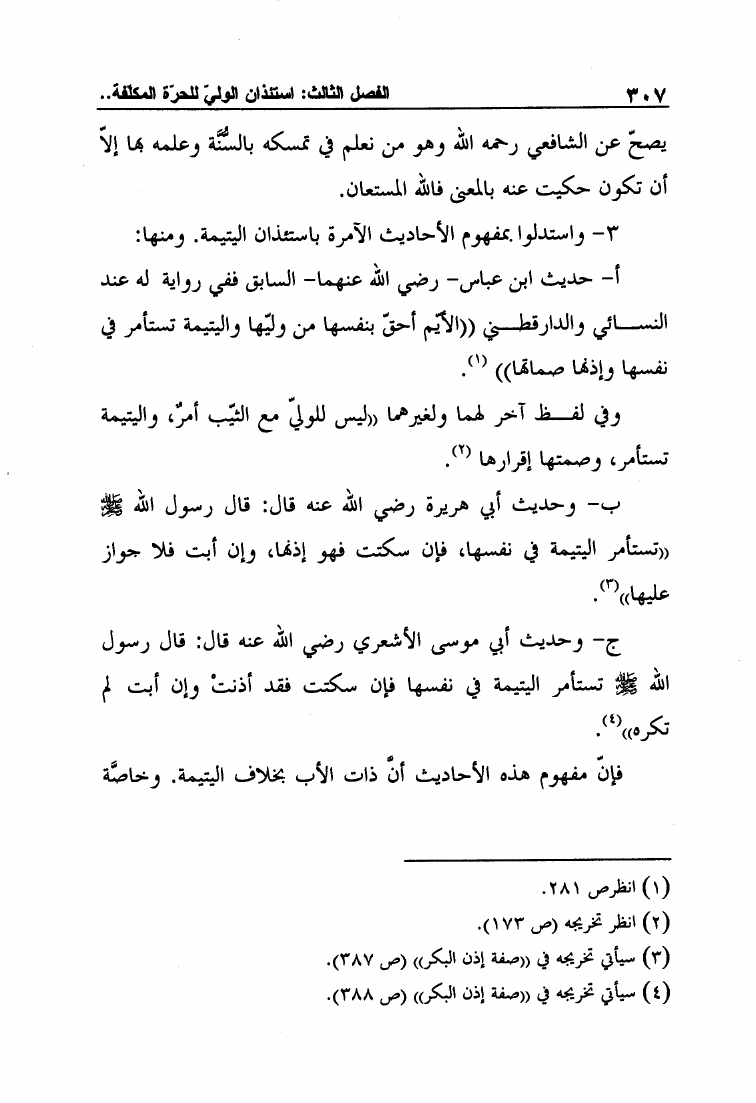 ٣٠٧ الفصل الثالث: استئذان الوليّ للحرّة المكلّفة..
يصحّ عن الشافعي رحمه الله وهو من نعلم في تمسكه بالسُّنَّة وعلمه بها إلاّ
أن تكون حكيت عنه بالمعنى فالله المستعان.
٣- واستدلوا بمفهوم الأحاديث الآمرة باستئذان اليتيمة. ومنها:
أ- حديث ابن عباس- رضي الله عنهما- السابق ففي رواية له عند
النســائي والدارقطــني ((الأيّم أحقّ بنفسها من وليّها واليتيمة تستأمر في
نفسها وإذنها صماتها)) (١).
وفي لفــظ آخر لهما ولغيرهما ((ليس للوليّ مع الثيّب أمرٌ، واليتيمة
تستأمر، وصمتها إقرارها (٢).
ب- وحديث أبي هريرة رضي الله عنه قال: قال رسول الله ﷺ
((تستأمر اليتيمة في نفسها، فإن سكتت فهو إذنها، وإن أبت فلا جواز
عليها))(٣).
ج- وحديث أبي موسى الأشعري رضي الله عنه قال: قال رسول
الله ﷺ تستأمر اليتيمة في نفسها فإن سكتت فقد أذنتْ وإن أبت لم
تكره))(٤).
فإنّ مفهوم هذه الأحاديث أنَّ ذات الأب بخلاف اليتيمة. وخاصَّة
(١) انظرص ٢٨١.
(٢) انظر تخريجه (ص ١٧٣).
(٣) سيأتي تخريجه في ((صفة إذن البكر)) (ص ٣٨٧).
(٤) سيأتي تخريجه في ((صفة إذن البكر)) (ص ٣٨٨).